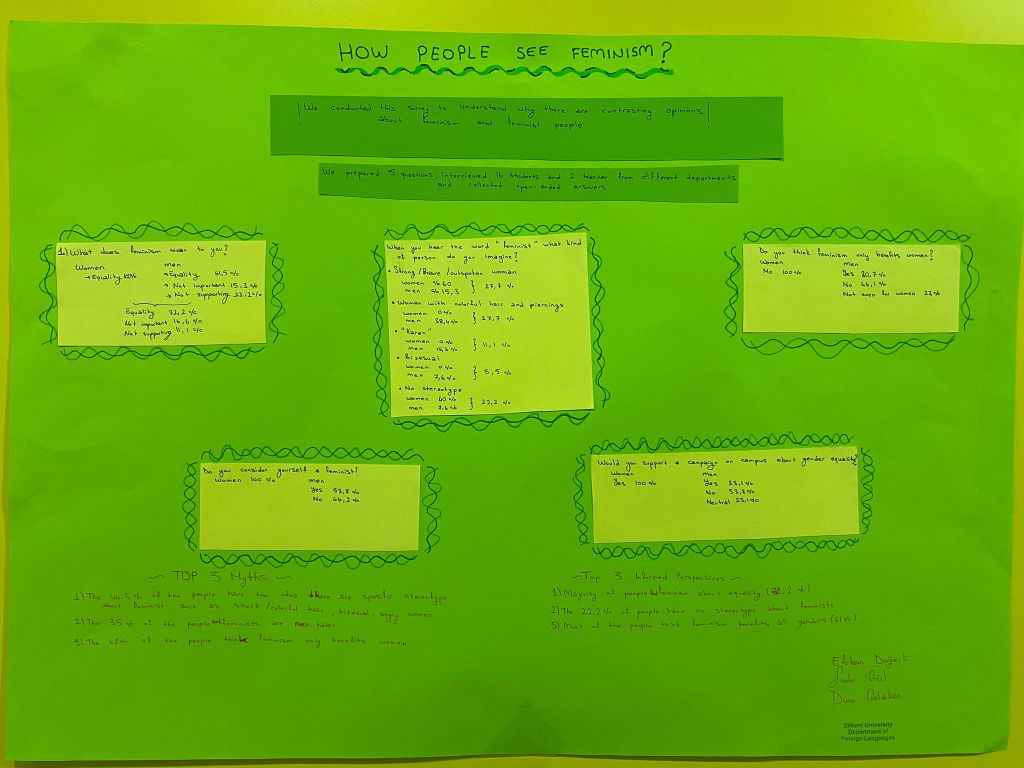 HOW PEOPLE SEE FEMINISM?
We conducted this survey to understand why there are contrasting opinions
about feminism and feminist people
We prepared 5 questions, interviewed 16 students and 2 teacher from different departments
and collected open-ended answers
1) What does feminism mean to you?
Women men
→ Equality 100% → Equality 61,5 %
→ Not important 15,3 %
→ Not supporting 23,2 %
Equality 72,2 %
Not important 16,6 %
Not supporting 11,1 %
When you hear the word "feminist" what kind
of person do you imagine?
• Strong/Brave/outspoken woman
women % 60
men % 15,3 } 27,7 %
• Woman with colorful hair and piercings
women 0 %
men 38,4 % } 27,7 %
• "Karen"
women 0 %
men 15,3 % } 11,1 %
• Bisexual
women 0 %
men 7,6 % } 5,5 %
• No stereotype
women 40 %
men 7,6 % } 22,2 %
Do you think feminism only benefits women?
Women men
No 100 % Yes 30,7 %
No 46,1 %
Not even for women 23 %
Do you consider yourself a feminist?
Women 100 % men
Yes 53,8 %
No 46,2 %
Would you support a campaign on campus about gender equality?
Women men
Yes 100 % Yes 23,1 %
No 53,8 %
Neutral 23,1 %
~ TOP 3 Myths ~
1) The % of the people have the idea there are specific stereotype
about feminist such as short/colorful hair, bisexual, angry women
2) The 35 % of the people feminists are men hater
3) The 62 % of the people think feminism only benefits women
~ Top 3 Informed Perspectives ~
1) Majority of people feminism about equality (72,2 %)
2) The 22,2 % of people have no stereotype about feminists
3) Most of the people think feminism benefits all genders (61 %)
Efekan
Gül
Çalışkan
Bilkent University
Department of
Foreign Languages